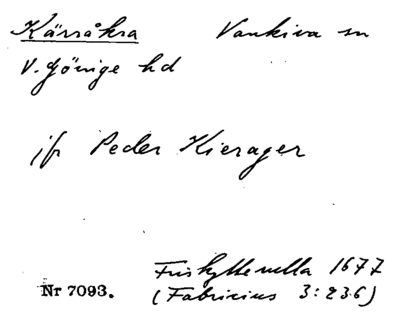 Kärråkra Vankiva sn
V. Göinge hd
jfr Peder Kierager
Friskytterulla 1677
Nr 7093. (Fabricius 3:236)